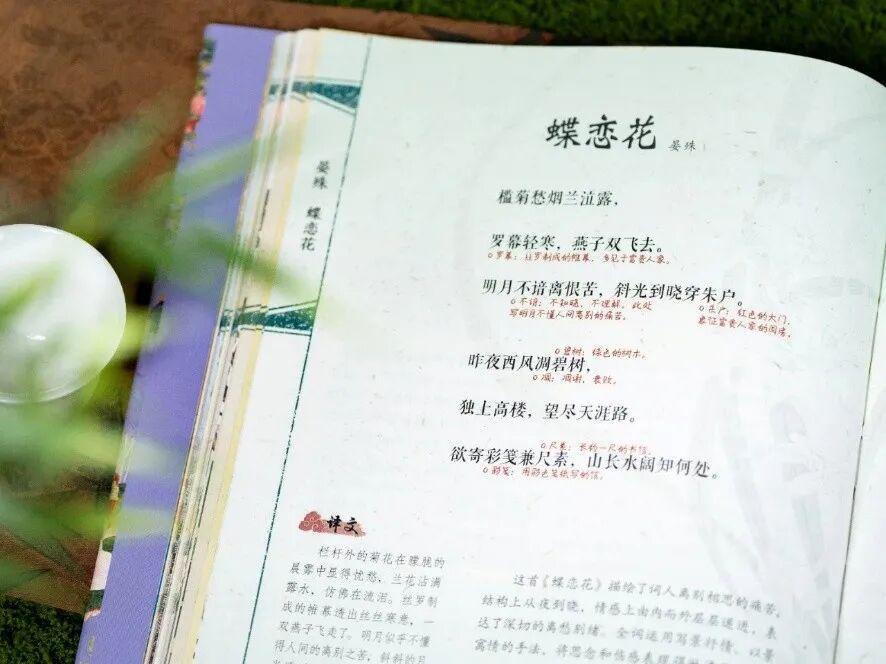 蝶恋花 晏殊
晏殊 蝶恋花
槛菊愁烟兰泣露，
罗幕轻寒，燕子双飞去。
罗幕：丝罗制成的帷幕，多见于富贵人家。
明月不谙离恨苦，斜光到晓穿朱户。
不谙：不知晓，不理解。此处
写明月不懂人间离别的痛苦。
朱户：红色的大门，
象征富贵人家的闺房。
碧树：绿色的树木。
昨夜西风凋碧树，
凋：凋谢，衰败。
独上高楼，望尽天涯路。
尺素：长约一尺的书信。
欲寄彩笺兼尺素，山长水阔知何处。
彩笺：用彩色笺纸写的信。
译文
栏杆外的菊花在朦胧的
晨雾中显得忧愁，兰花沾满
露水，仿佛在流泪。丝罗制
成的帷幕透出丝丝寒意，一
双燕子飞走了。明月似乎不懂
得人间的离别之苦，斜斜的月
这首《蝶恋花》描绘了词人离别相思的痛苦，
结构上从夜到晓，情感上由内而外层层递进，表
达了深切的离愁别绪。全词运用写景抒情、以景
寓情的手法，将思念和伤感表现得